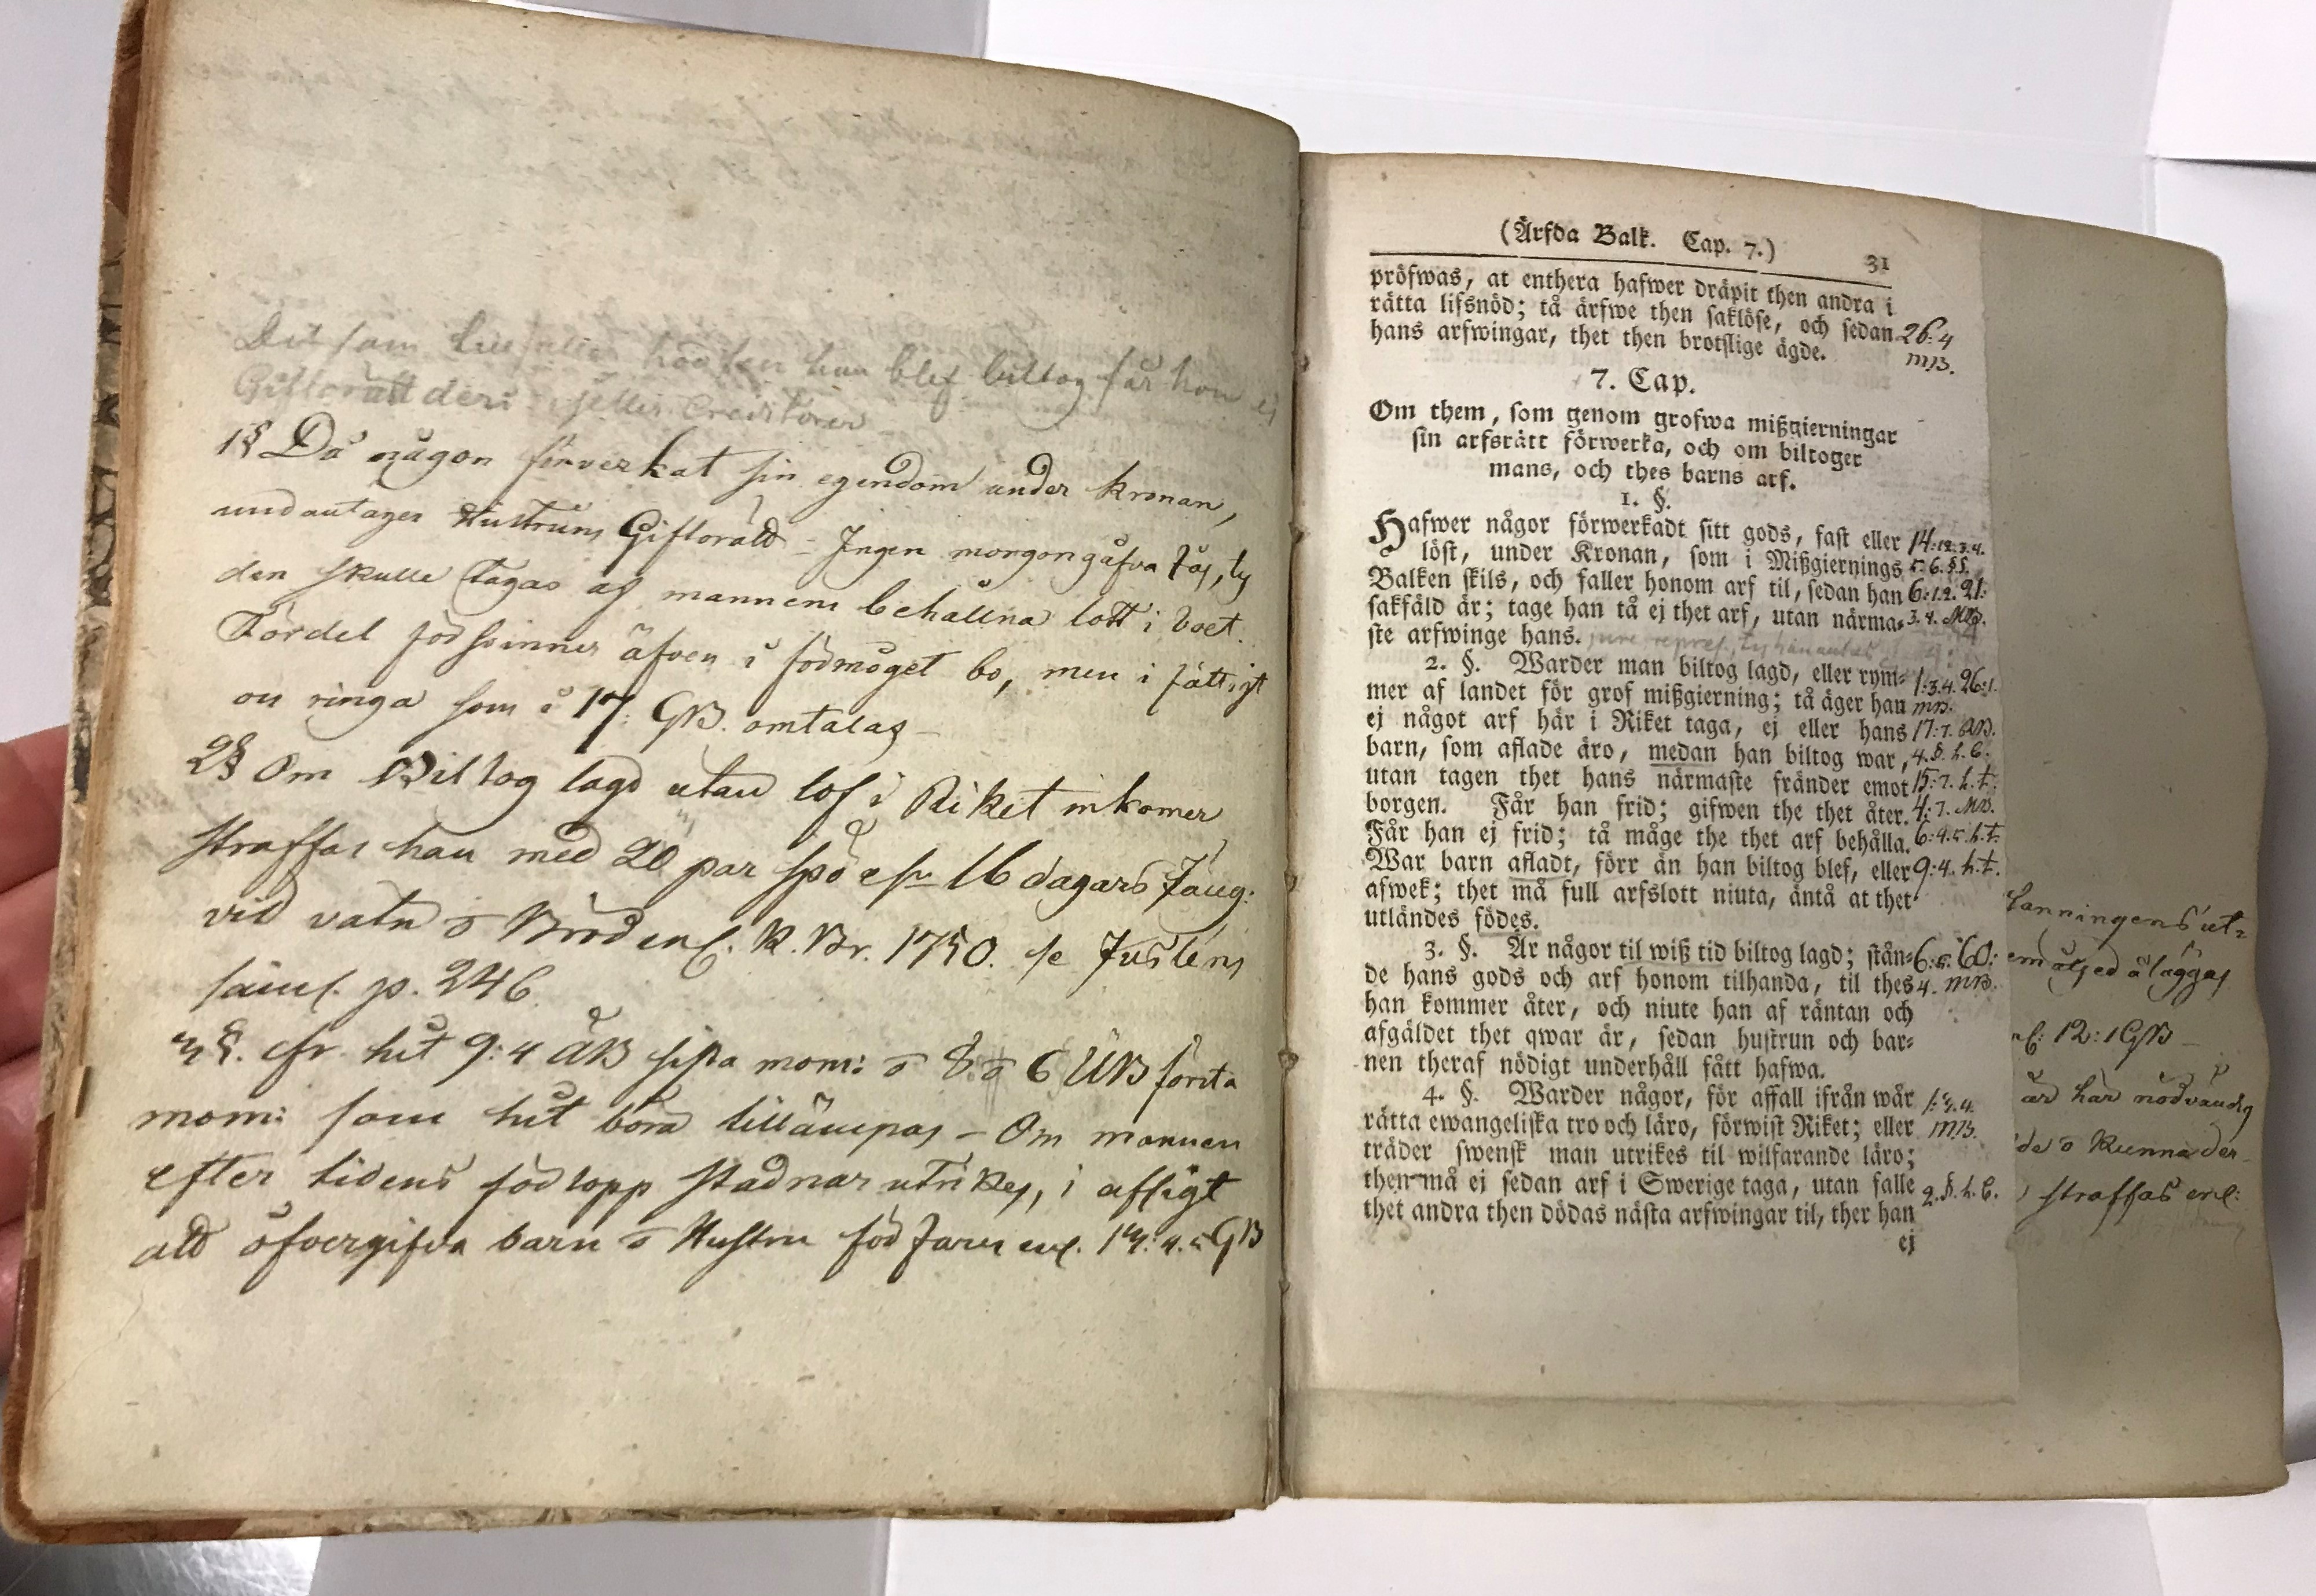 Det som han blef biltog får hon ej
Giftorätt deri eller Creditorer
1§ Då någon förverkat sin egendom under Kronan,
undantages Hustruns Giftorätt – Ingen morgongåfva fås, ty
den skulle tagas af mannens behållna lott i boet.
Fördel försvinner äfven i förmöget bo, men i fattigt
ringa som i 17: GB. omtalas –
2§ Om Biltog lagd utan lof i Riket inkomer
straffas han med 20 par spö 16 dagars Fäng:
vid vatn o Bröd enl. K. Br. 1750. se
saml. p. 246
3§. cfr. hit 9:4 ÄB sista mom: o 8 o 6 UB första
mom: som hit böra tillämpas – Om mannen
efter tidens förlopp stadnar utrikes, i afsigt
att öfvergifva barn o Hustru förfares enl. 13:4. GB
(Ärfda Balk. Cap. 7.) 31
pröfwas, at enthera hafwer dräpit then andra i
rätta lifsnöd; tå ärfwe then saklöse, och sedan 26:4
hans arfwingar, thet then brotslige ägde. MB.
7. Cap.
Om them, som genom grofwa mißgierningar
sin arfsrätt förwerka, och om biltoger
mans, och thes barns arf.
1. §.
Hafwer någor förwerkadt sitt gods, fast eller 14:1.2.3.4.
löst, under Kronan, som i Mißgiernings 5. 6. §§.
Balken skils, och faller honom arf til, sedan han 6:1.2. 21:
sakfäld är; tage han tå ej thet arf, utan närma= 3. 4. MB.
ste arfwinge hans. jure repræs.
2. §. Warder man biltog lagd, eller rym= 1:3.4. 26:1.
mer af landet för grof mißgierning; tå äger han MB.
ej något arf här i Riket taga, ej eller hans 17:7.
barn, som aflade äro, medan han biltog war, 4. §. h. C.
utan tagen thet hans närmaste fränder emot 15:7. h. t.
borgen. Får han frid; gifwen the thet åter. 4:7. MB.
Får han ej frid; tå måge the thet arf behålla. 6:4.5. h. t.
War barn afladt, förr än han biltog blef, eller 9:4. h. t.
afwek; thet må full arfslott niuta, äntå at thet
utländes födes.
3. §. Är någor til wiß tid biltog lagd; stån= 6:5. 60:
de hans gods och arf honom tilhanda, til thes 4. MB.
han kommer åter, och niute han af räntan och
afgäldet thet qwar är, sedan hustrun och bar=
nen theraf nödigt underhåll fått hafwa.
4. §. Warder någor, för affall ifrån wår 1:3.4.
rätta ewangeliska tro och läro, förwist Riket; eller MB.
träder swensk man utrikes til wilfarande läro;
then må ej sedan arf i Swerige taga, utan falle 2. §. h. C.
thet andra then dödas nästa arfwingar til, ther han
ej
anningens ut=
ed åläggas
enl: 12:1 GB –
är här nödvändig
de o kunna der
straffas enl: